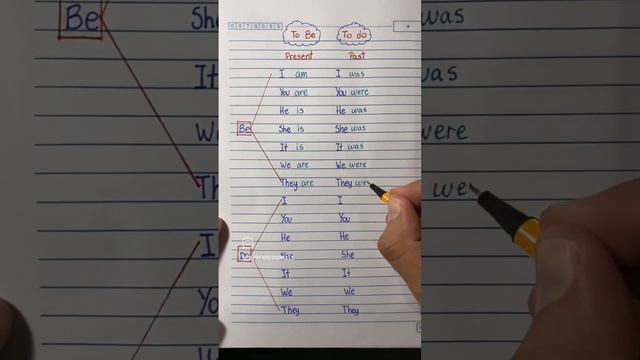 To Be To do
Present Past
I am I was
You are You were
He is He was
Be She is She was
It is It was
We are We were
They are They we
I I
You You
He He
Do She She
It It
We We
They They